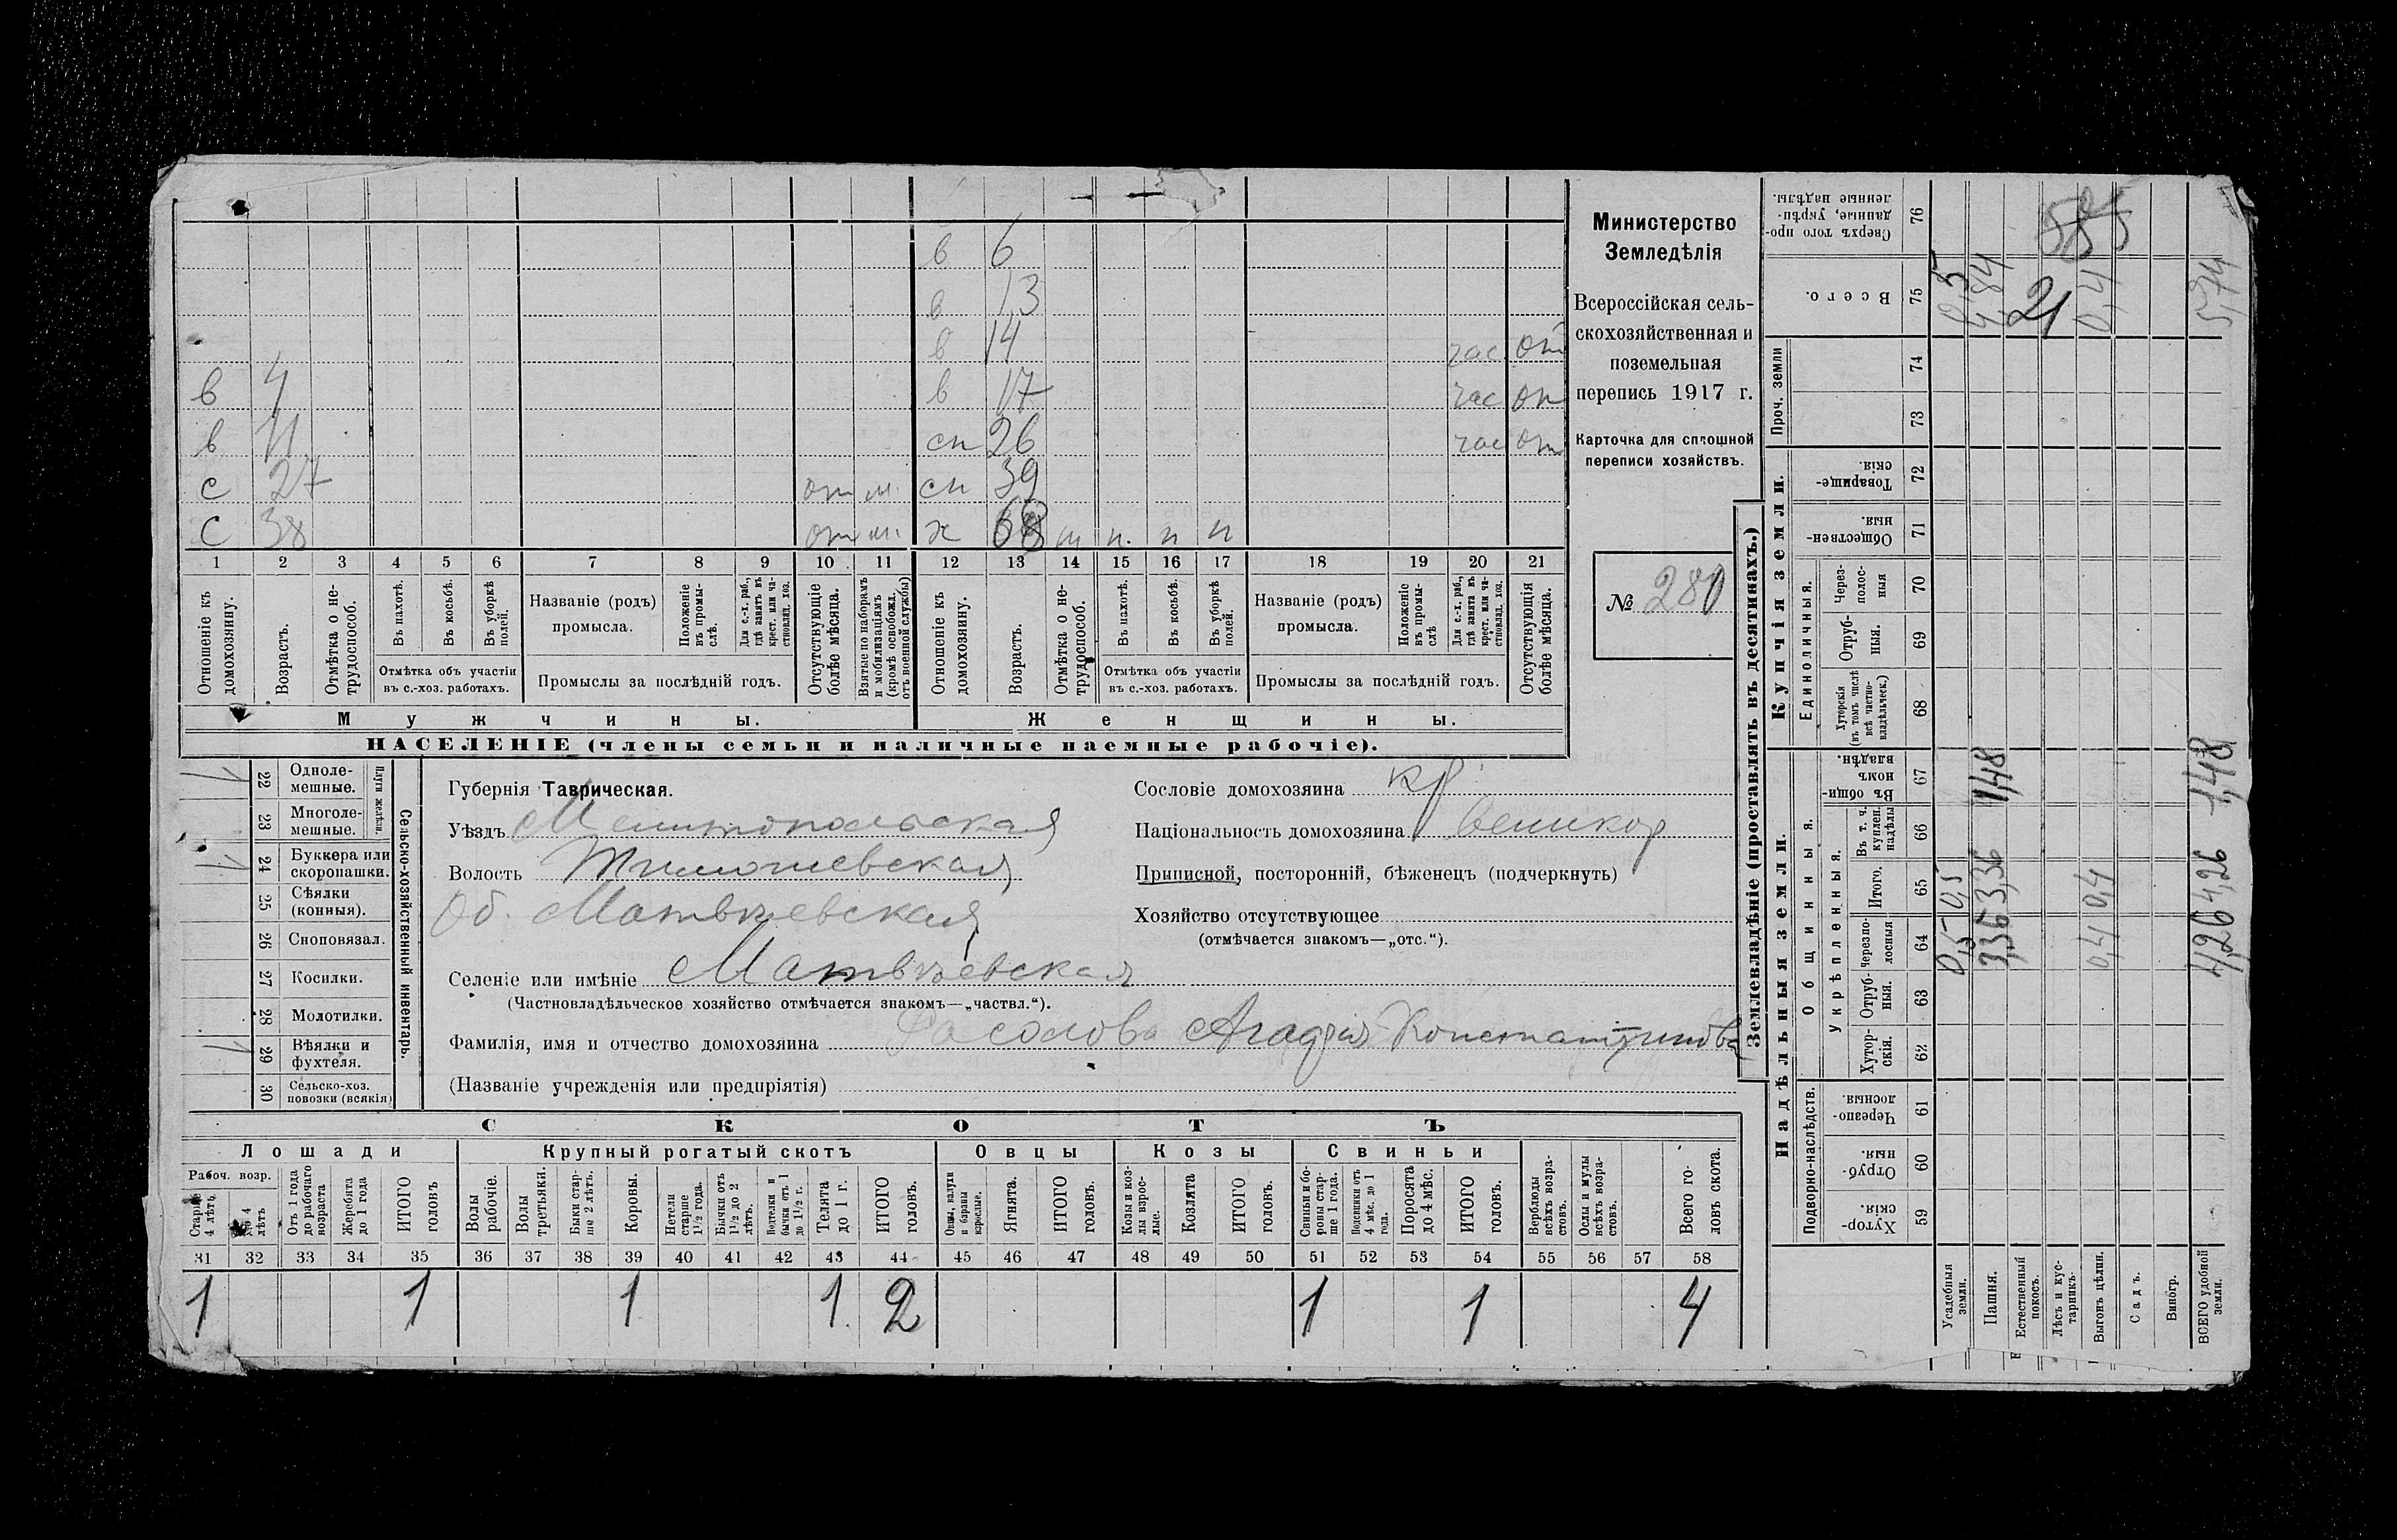 в 6
в 13
в 14 час от
в 4 в 17 час от
в 11 сн 26 час от
с 27 от м. сн 39
с 38 от м. х 68 п. п п
1 2 3 4 5 6 7 8 9 10 11 12 13 14 15 16 17 18 19 20 21
Отношеніе къ домохозяину.
Возрастъ.
Отмѣтка о не-
трудоспособ.
Въ пахотѣ.
Въ косьбѣ.
Въ уборкѣ полей.
Отмѣтка объ участіи
въ с.-хоз. работахъ.
Названіе (родъ)
промысла.
Положеніе
въ промы-
слѣ.
Для с.-х. раб.,
гдѣ занятъ въ
крест. или ча-
стновлад. хоз.
Промыслы за послѣдній годъ.
Отсутствующіе
болѣе мѣсяца.
Взятые по наборамъ
и мобилизаціямъ
(кромѣ освобожд.
отъ военной службы)
Отношеніе къ
домохозяину.
Возрастъ.
Отмѣтка о не-
трудоспособ.
Въ пахотѣ.
Въ косьбѣ.
Въ уборкѣ
полей.
Отмѣтка объ участіи
въ с.-хоз. работахъ.
Названіе (родъ)
промысла.
Положеніе
въ промы-
слѣ
Для с.-х. раб.,
гдѣ занята въ
крест. или ча-
стновлад. хоз.
Промыслы за послѣдній годъ.
Отсутствующія
болѣе мѣсяца.
Мужчины.
Женщины.
НАСЕЛЕНІЕ (члены семьи и наличные наемные рабочіе).
Министерство
Земледѣлія
Всероссійская сель-
скохозяйственная и
поземельная
перепись 1917 г.
Карточка для сплошной
переписи хозяйствъ.
№ 280
22 Одноле-
мешные.
23 Многоле-
мешные.
Плуги желѣзн.
24 Буккера или
скоропашки.
25 Сѣялки
(конныя).
26 Сноповязал.
27 Косилки.
28 Молотилки.
29 Вѣялки и
фухтеля.
30 Сельско-хоз.
повозки (всякія)
Сельско-хозяйственный инвентарь.
Губернія Таврическая.
Уѣздъ Мелитопольская
Волость Тимошевская
Об. Матвѣевская
Селеніе или имѣніе Матвѣевская
(Частновладѣльческое хозяйство отмѣчается знакомъ—„частвл.“).
Фамилія, имя и отчество домохозяина Константинова
(Названіе учрежденія или предпріятія)
Сословіе домохозяина кр
Національность домохозяина великор
Приписной, посторонній, бѣженецъ (подчеркнуть)
Хозяйство отсутствующее
(отмѣчается знакомъ—„отс.“).
СКОТЪ
Лошади
Крупный рогатый скотъ
Овцы
Козы
Свиньи
Рабоч. возр.
Старше
4 лѣтъ
До 4
лѣтъ
Отъ 1 года
до рабочаго
возраста
Жеребята
до 1 года
ИТОГО
головъ
Волы
рабочіе.
Волы
третьяки.
Быки стар-
ше 2 лѣтъ.
Коровы.
Нетели
старше
1 1/2 года.
Бычки отъ
1 1/2 до 2
лѣтъ.
бычки отъ 1
до 1 1/2 г.
Телята
до 1 г.
ИТОГО
головъ.
Овцы, валухи
и бараны
взрослые.
Ягнята.
ИТОГО
головъ.
Козы и коз-
лы взрос-
лые.
Козлята
ИТОГО
головъ.
Свиньи и бо-
ровы стар-
ше 1 года.
Подсвинки отъ
4 мѣс. до 1
года.
Поросята
до 4 мѣс.
ИТОГО
головъ.
Верблюды
всѣхъ возра-
стовъ.
Ослы и мулы
всѣхъ возра-
стовъ.
Всего го-
ловъ скота.
31 32 33 34 35 36 37 38 39 40 41 42 43 44 45 46 47 48 49 50 51 52 53 54 55 56 57 58
1 1 1 1 2 1 1 4
Землевладѣніе (проставлять въ десятинахъ.)
Надѣльныя земли.
Купчія земли.
Проч. земли
Подворно-наслѣдств.
Общинныя.
Укрѣпленныя.
Единоличныя.
Хутор-
скія. 59
Отруб-
ныя. 60
Черезпо-
лосныя. 61
Хутор-
скія. 62
Отруб-
ныя. 63
Черезпо-
лосныя 64
Итого. 65
Въ т. ч.
куплен.
надѣлы 66
Въ общи-
номъ
владѣн. 67
Хуторскія
(въ томъ числѣ
всѣ частно-
владѣльческ.) 68
Отруб-
ныя. 69
Через-
полос-
ныя 70
Обществен-
ныя. 71
Товарище-
скія. 72
73
74
Всего. 75
Сверхъ того про-
данные, укрѣп-
ленные надѣлы. 76
Усадебныя
земли. 0,5 0,5 0,5
Пашня. 3,36 3,36 1,48 4,84
Естественный
покосъ. 21
Лѣсъ и кус-
тарникъ.
Выгонъ цѣлин. 0,4 0,4 0,4
Садъ.
Виногр.
ВСЕГО удобной
земли. 4,26 4,26 1,48 5,74
585